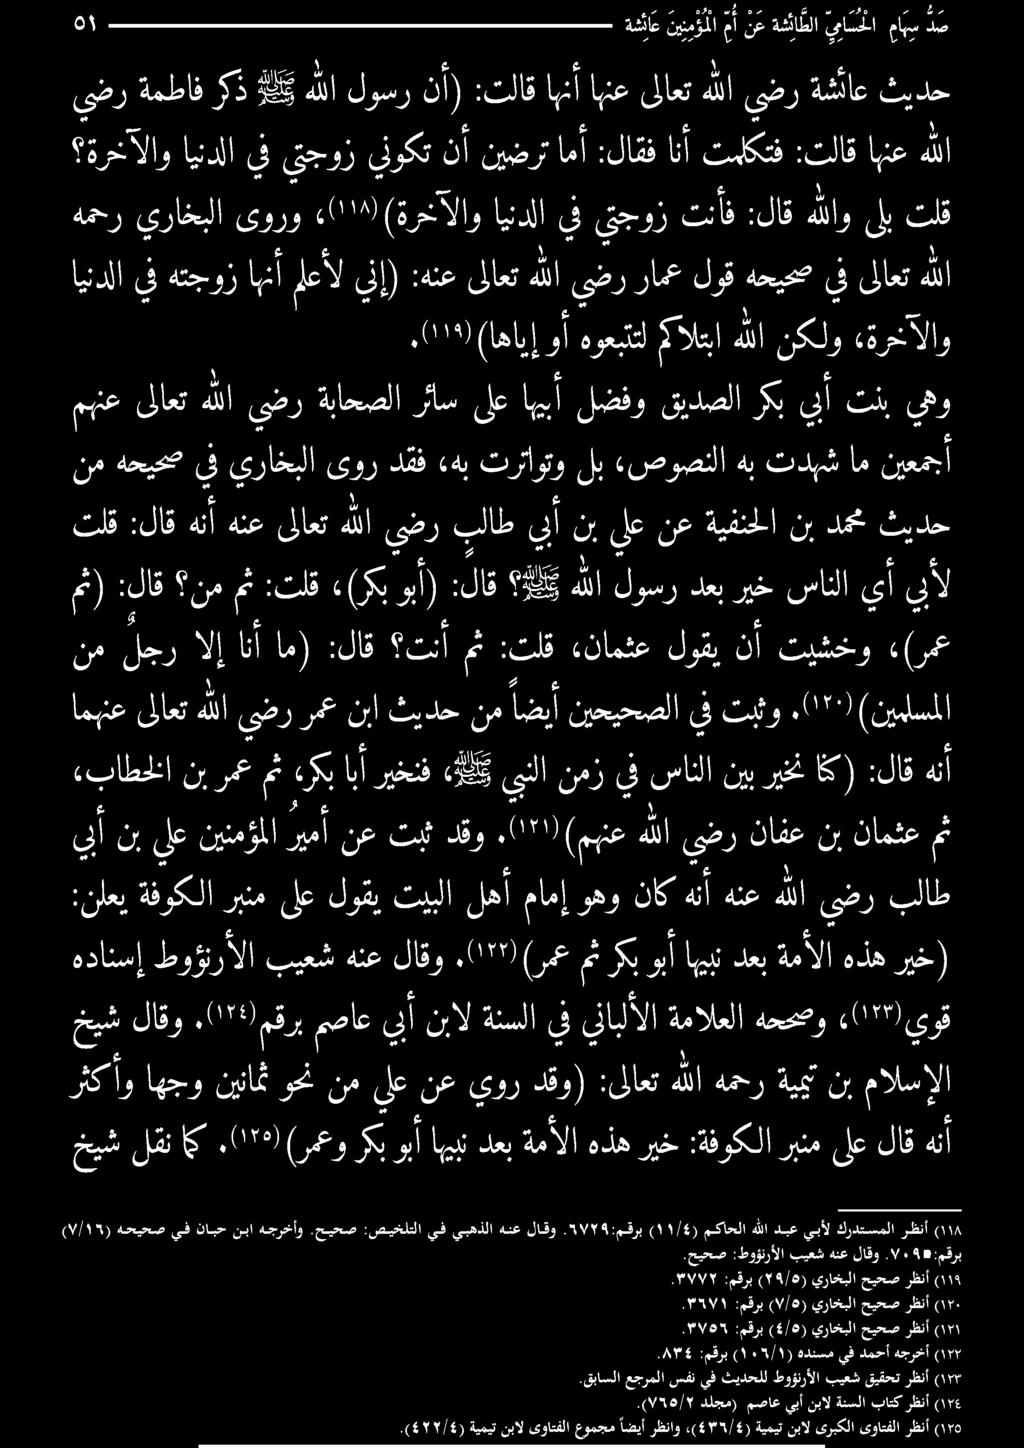 صَدُّ سِهَامِ الحُسَامِيِّ الطَّائِشة عَنْ أُمِّ الْمُؤْمِنِينَ عَائِشة ٥١
حديث عائشة رضي الله تعالى عنها أنها قالت: (أن رسول الله ﷺ ذكر فاطمة رضي
الله عنها قالت: فتكلمت أنا فقال: أما ترضين أن تكوني زوجتي في الدنيا والآخرة؟
قلت بلى والله قال: فأنت زوجتي في الدنيا والآخرة)(١١٨)، وروى البخاري رحمه
الله تعالى في صحيحه قول عمار رضي الله تعالى عنه: (إني لأعلم أنها زوجته في الدنيا
والآخرة، ولكن الله ابتلاكم لتتبعوه أو إياها)(١١٩).
وهي بنت أبي بكر الصديق وفضل أبيها على سائر الصحابة رضي الله تعالى عنهم
أجمعين ما شهدت به النصوص، بل وتواترت به، فقد روى البخاري في صحيحه من
حديث محمد بن الحنفية عن علي بن أبي طالب رضي الله تعالى عنه أنه قال: قلت
لأبي أي الناس خير بعد رسول الله ﷺ؟ قالَ: (أبو بكر)، قلت: ثم من؟ قال: (ثم
عمر)، وخشيت أن يقول عثمان، قلت: ثم أنت؟ قال: (ما أنا إلا رجلٌ من
المسلمين)(١٢٠). وثبت في الصحيحين أيضاً من حديث ابن عمر رضي الله تعالى عنهما
أنه قال: (كنا نخير بين الناس في زمن النبي ﷺ، فنخير أبا بكر، ثم عمر بن الخطاب،
ثم عثمان بن عفان رضي الله عنهم)(١٢١). وقد ثبت عن أميرُ المؤمنين علي بن أبي
طالب رضي الله عنه أنه كان وهو إمام أهل البيت يقول على منبر الكوفة يعلن:
(خير هذه الأمة بعد نبيها أبو بكر ثم عمر)(١٢٢). وقال عنه شعيب الأرنؤوط إسناده
قوي(١٢٣)، وصححه العلامة الألباني في السنة لابن أبي عاصم برقم(١٢٤). وقال شيخ
الإسلام بن تيمية رحمه الله تعالى: (وقد روي عن علي من نحو ثمانين وجها وأكثر
أنه قال على منبر الكوفة: خير هذه الأمة بعد نبيها أبو بكر وعمر)(١٢٥). كما نقل شيخ
١١٨) أنظر المستدرك لأبي عبد الله الحاكم (١١/٤) برقم:٦٧٢٩. وقال عنه الذهبي في التلخيص: صحيح. وأخرجه ابن حبان في صحيحه (٧/١٦)
برقم:٧٠٩٥. وقال عنه شعيب الأرنؤوط: صحيح.
١١٩) أنظر صحيح البخاري (٢٩/٥) برقم: ٣٧٧٢.
١٢٠) أنظر صحيح البخاري (٧/٥) برقم: ٣٦٧١.
١٢١) أنظر صحيح البخاري (٤/٥) برقم: ٣٧٥٦.
١٢٢) أخرجه أحمد في مسنده (١٠٦/١) برقم: ٨٣٤.
١٢٣) أنظر تحقيق شعيب الأرنؤوط للحديث في نفس المرجع السابق.
١٢٤) أنظر كتاب السنة لابن أبي عاصم (مجلد ٧٦٥/٢).
١٢٥) أنظر الفتاوى الكبرى لابن تيمية (٤٣٦/٤)، وانظر أيضاً مجموع الفتاوى لابن تيمية (٤٢٢/٤).